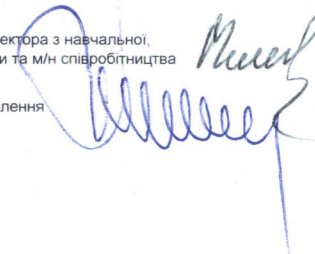 ектора з навчальної,
и та м/н співробітництва
лення